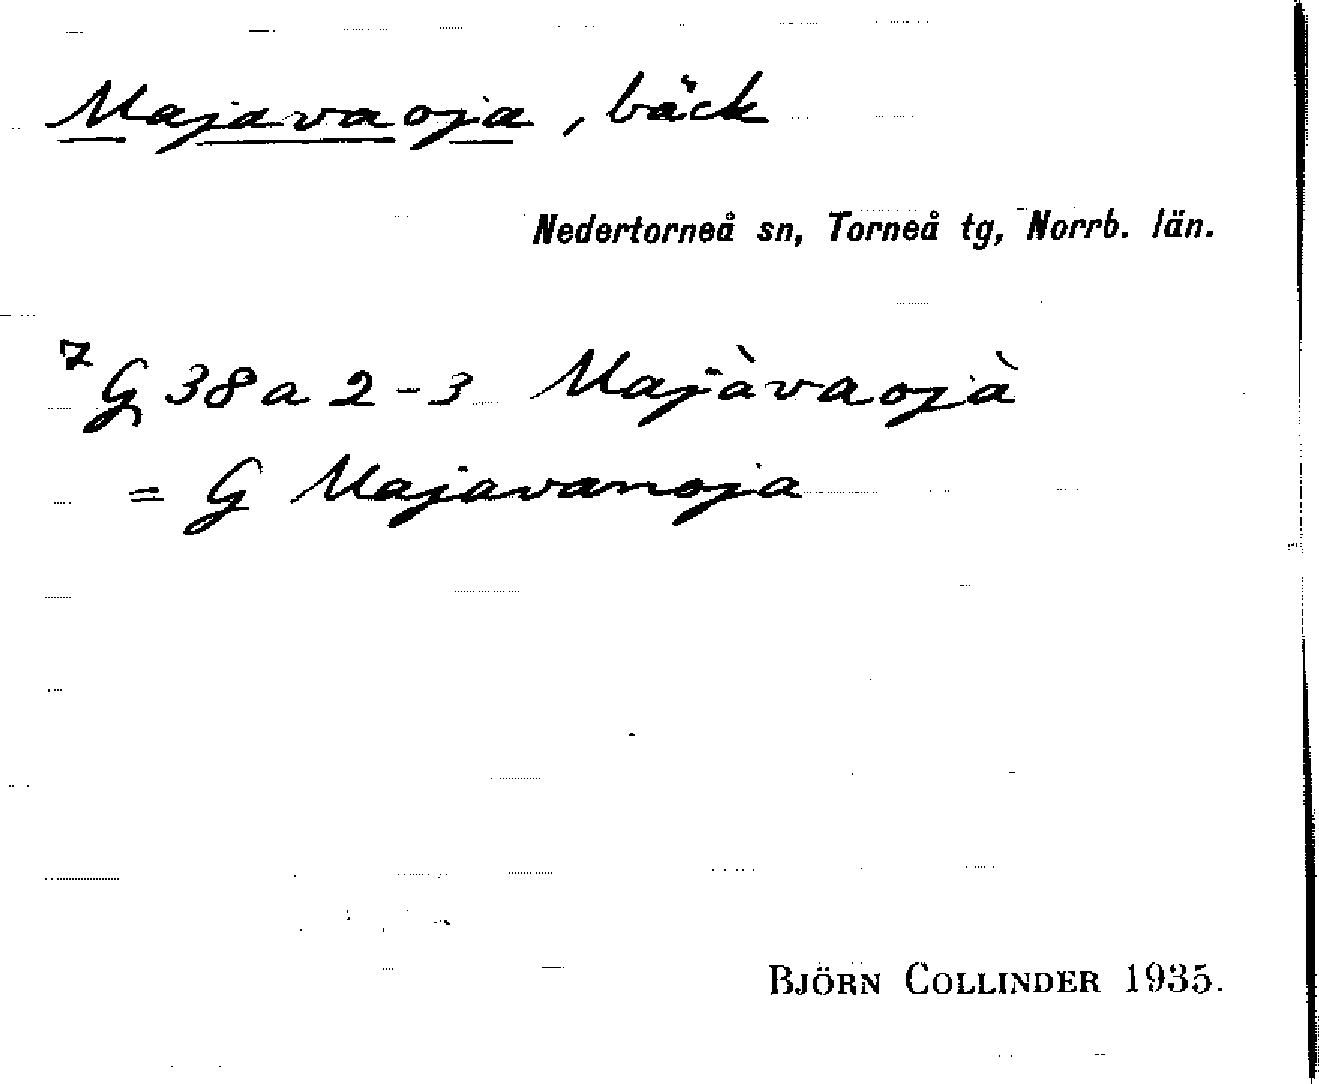 Majavaoja, bäck
Nedertorneå sn, Torneå tg, Norrb. län.
7 G 38 a 2-3 Majàvaojà
= G Majavanoja
BJÖRN COLLINDER 1935.